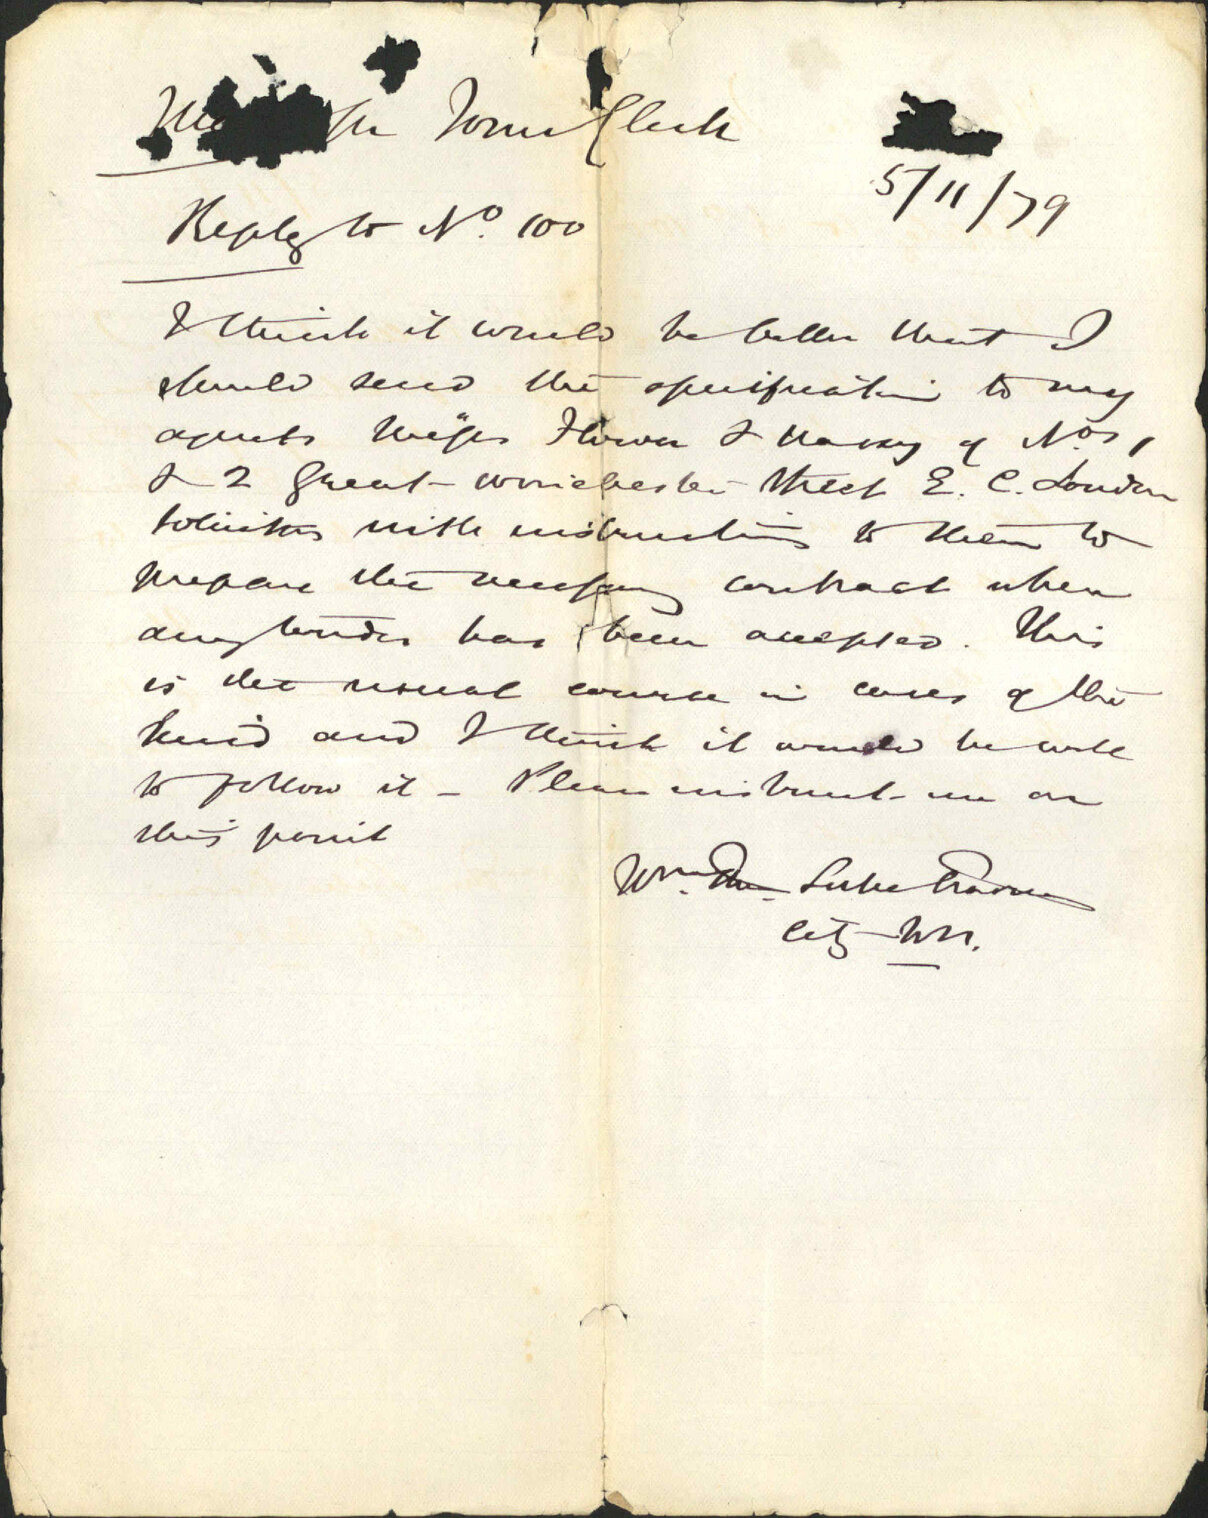 Town Clerk
5/11/79
Reply to No. 100
I think it would be better that I
should send the specification to my
agents Messrs Flower & Nussey of Nos 1
& 2 Great Winchester Street E. C. London
Solicitors with instructions to them to
prepare the necessary contract when
any tender has been accepted. This
is the usual course in cases of the
kind and I think it would be well
to follow it – Please instruct me on
this point
Wm. Thos. Locke Travers
City